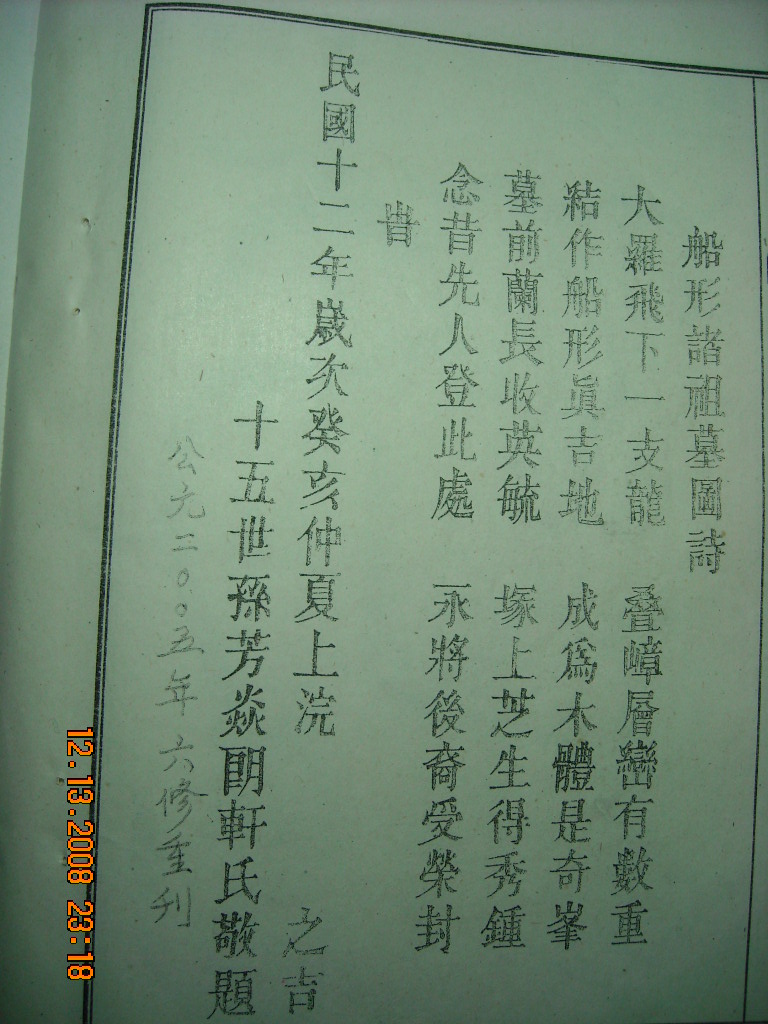 船形諸祖墓圖詩
大羅飛下一支龍　叠嶂層巒有數重
結作船形眞吉地　成爲木體是奇峯
墓前蘭長收英毓　塚上芝生得秀鍾
念昔先人登此處　永將後裔受榮封
旹
民國十二年歲次癸亥仲夏上浣　之吉
十五世孫芳焱朗軒氏敬題
公元二〇〇五年六修重刊
12.13.2008 23:18